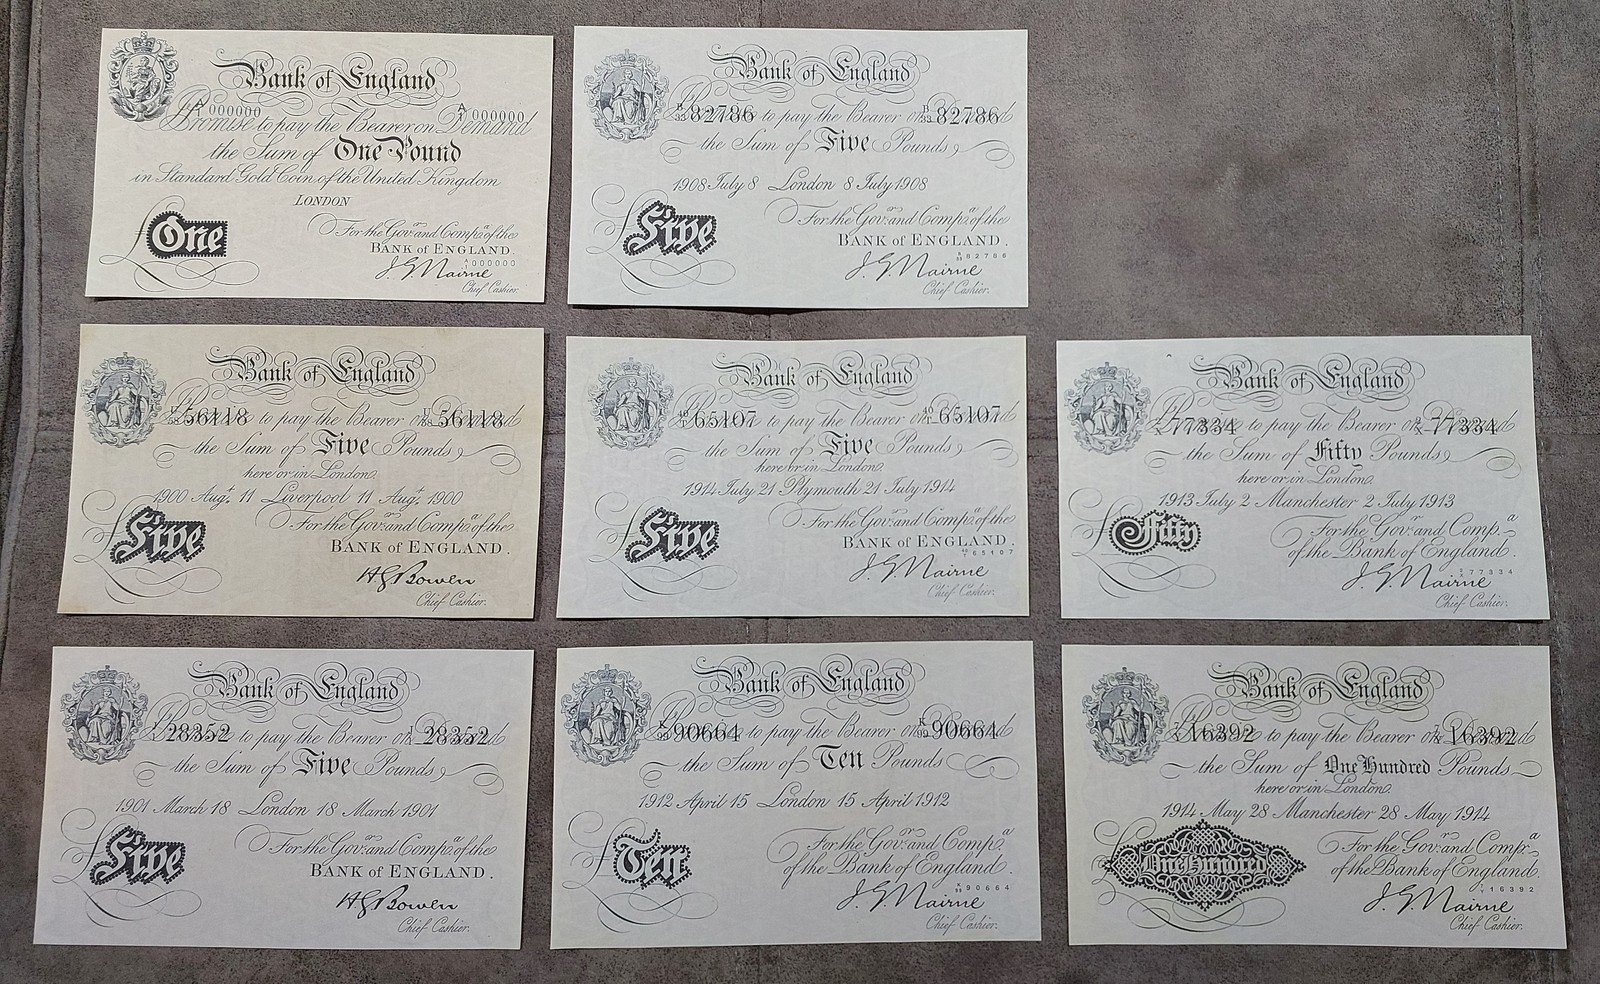 Bank of England
A/1 000000 A/1 000000
Promise to pay the Bearer on Demand
the Sum of One Pound
in Standard Gold Coin of the United Kingdom
LONDON
For the Govr. and Compa. of the
BANK of ENGLAND.
A/1 000000
£ One
J.G. Nairne
Chief Cashier.
Bank of England
82786 to pay the Bearer on 82786
the Sum of Five Pounds
1908 July 8 London 8 July 1908
For the Govr. and Compa. of the
BANK of ENGLAND.
82786
£ Five
J.G. Nairne
Chief Cashier.
Bank of England
56118 to pay the Bearer on 56118
the Sum of Five Pounds
here or in London.
1900 Augt. 11 Liverpool 11 Augt. 1900
For the Govr. and Compa. of the
BANK of ENGLAND.
£ Five
H G Bowen
Chief Cashier.
Bank of England
65107 to pay the Bearer on 65107
the Sum of Five Pounds
here or in London.
1914 July 21 Plymouth 21 July 1914
For the Govr. and Compa. of the
BANK of ENGLAND.
65107
£ Five
J.G. Nairne
Chief Cashier.
Bank of England
77334 to pay the Bearer on 77334
the Sum of Fifty Pounds
here or in London.
1913 July 2 Manchester 2 July 1913
For the Govr. and Compa.
of the Bank of England.
77334
£ Fifty
J.G. Nairne
Chief Cashier.
Bank of England
28352 to pay the Bearer on 28352
the Sum of Five Pounds
1901 March 18 London 18 March 1901
For the Govr. and Compa. of the
BANK of ENGLAND.
£ Five
H G Bowen
Chief Cashier.
Bank of England
90664 to pay the Bearer on 90664
the Sum of Ten Pounds
1912 April 15 London 15 April 1912
For the Govr. and Compa.
of the Bank of England.
90664
£ Ten
J.G. Nairne
Chief Cashier.
Bank of England
16392 to pay the Bearer on 16392
the Sum of One Hundred Pounds
here or in London.
1914 May 28 Manchester 28 May 1914
For the Govr. and Compa.
of the Bank of England.
16392
£ One Hundred
J.G. Nairne
Chief Cashier.